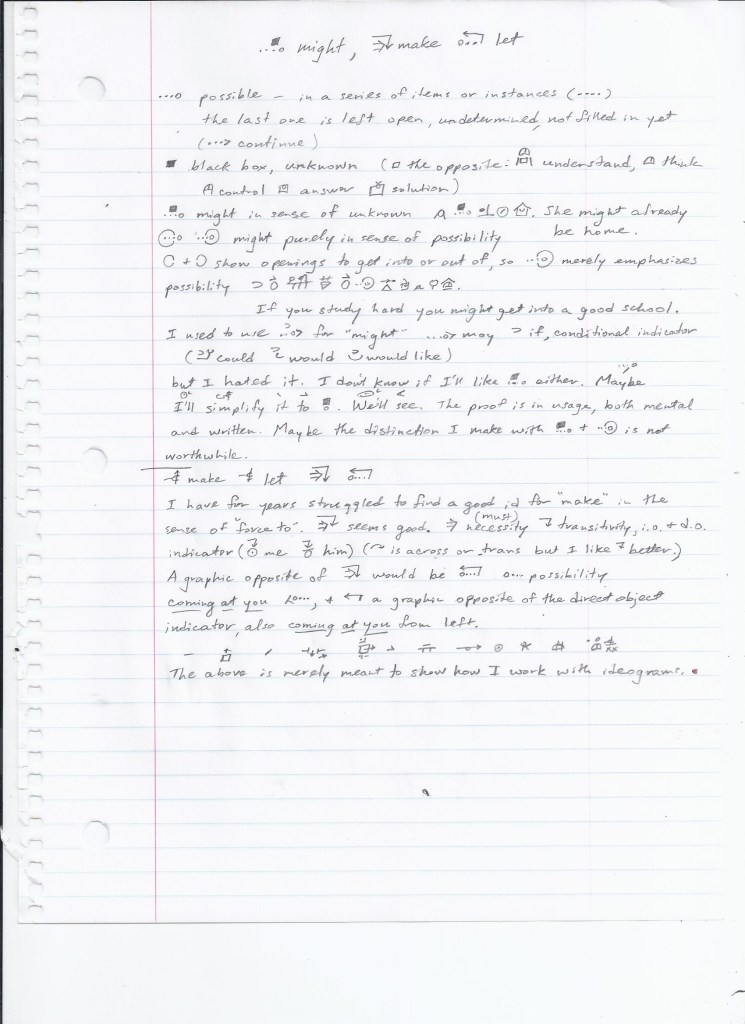 ...■o might, ⇉↓ make o...⮠ let
...o possible – in a series of items or instances (....)
the last one is left open, undetermined, not filled in yet
(...> continue)
■ black box, unknown (□ the opposite: understand, think
control answer solution)
..■o might in sense of unknown. She might already
be home.
might purely in sense of possibility
C + Ɔ show openings to get into or out of, so merely emphasizes
possibility
If you study hard you might get into a good school.
I used to use for "might" ...or may ⊃ if, conditional indicator
( could would would like)
but I hated it. I don't know if I'll like ..■o either. Maybe
I'll simplify it to . We'll see. The proof is in usage, both mental
and written. Maybe the distinction I make with + is not
worthwhile.
make let
I have for years struggled to find a good id for "make" in the
(must)
sense of "force to". seems good. ⇉ necessity transitivity, i.o. + d.o.
indicator ( me him) ( is across or trans but I like better.)
A graphic opposite of would be o... possibility
coming at you <o..., + a graphic opposite of the direct object
indicator, also coming at you from left.
The above is merely meant to show how I work with ideograms.